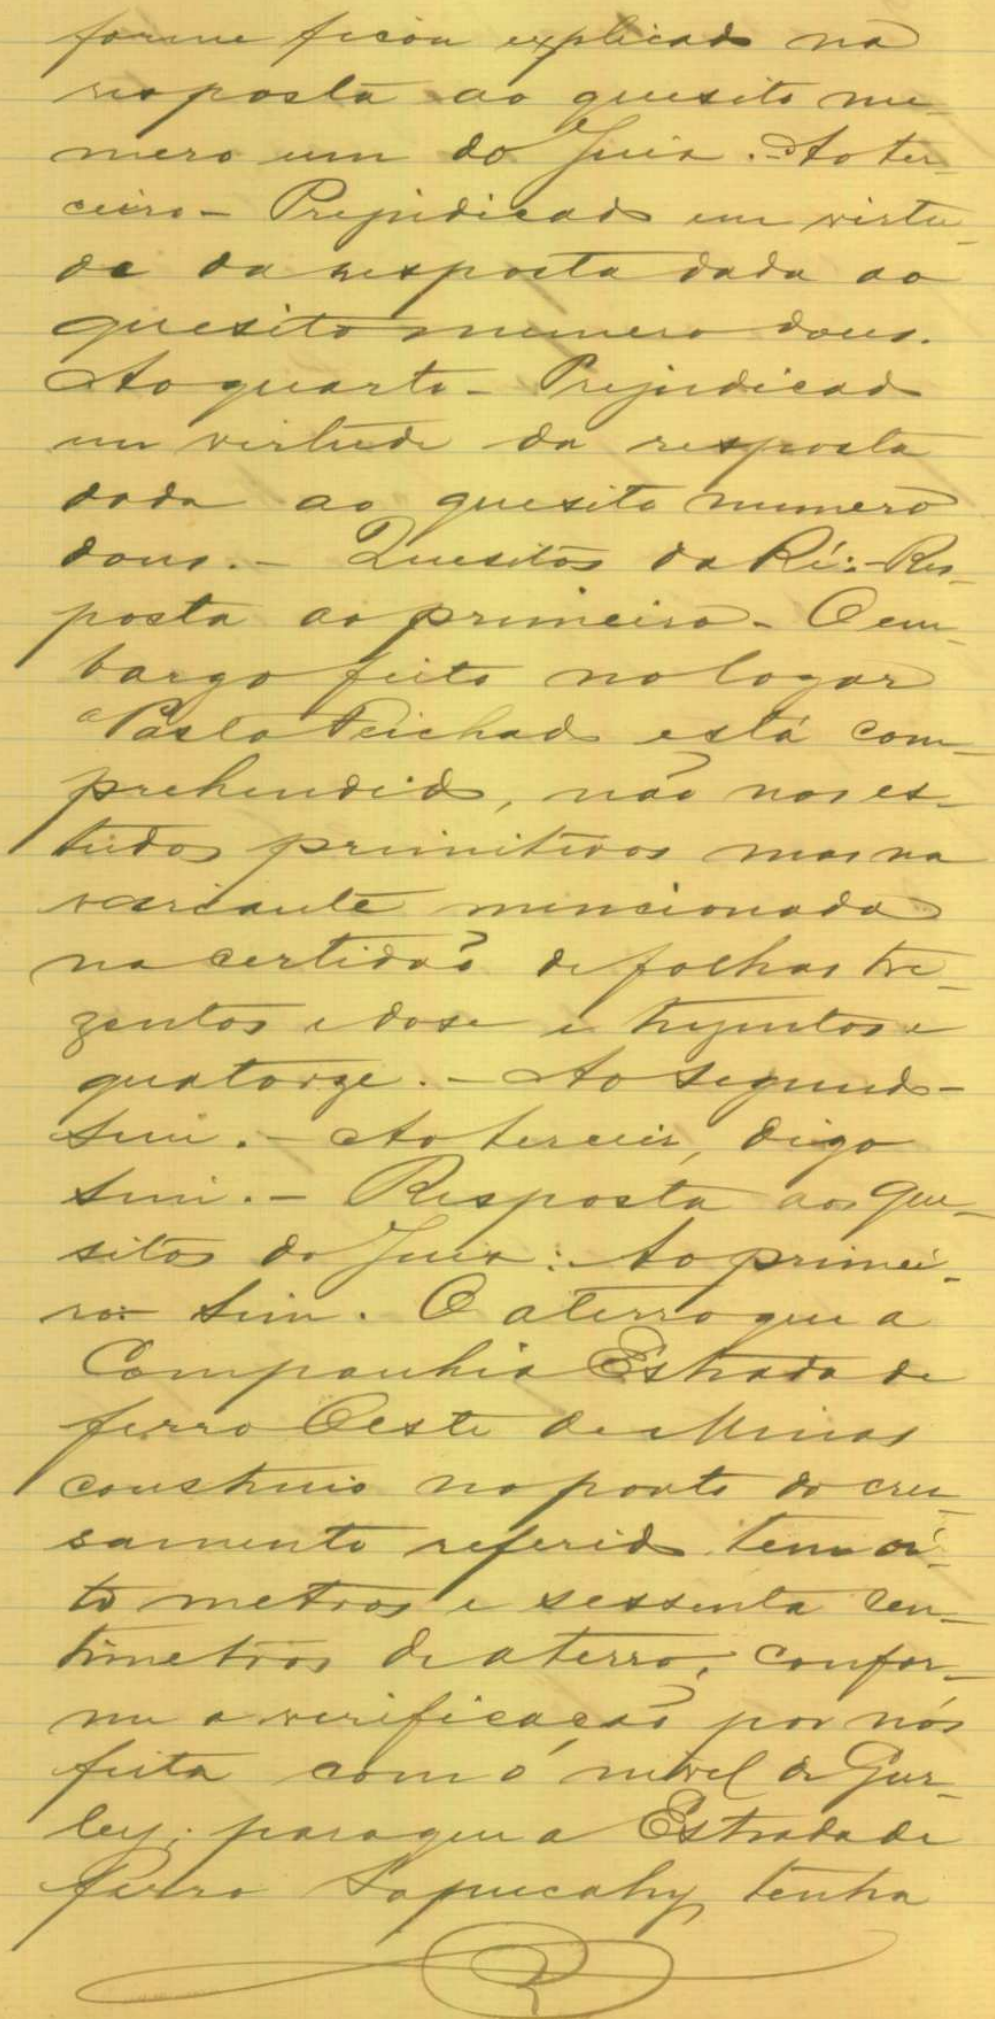 forme ficou explicado na
resposta ao quesito nu-
mero um do Juiz. Ao ter-
ceiro - Prejudicado em virtu-
de da resposta dada ao
quesito numero dous.
Ao quarto - Prejudicado
em virtude da resposta
dada ao quesito numero
dous. - Quesitos da Ré: - Res-
posta ao primeiro - O em-
bargo feito no logar
"Pasto Feichado está com-
prehendido, não nos es-
tudos primitivos mas na
variante mencionada
na certidão de folhas tre-
zentos e dose e trezentos e
quatorze. - Ao segundo -
Sim. - Ao terceiro, digo
Sim. - Resposta aos que-
sitos do Juiz: Ao primei-
ro: Sim. O aterro que a
Companhia Estrada de
ferro Oeste de Minas
construio no ponto do cru-
samento referido tem oi-
to metros e sessenta cen-
timetros de aterro, confor-
me a verificação por nós
feita com o nivel de Gur-
ley; para que a Estrada de
ferro Sapucahy tenha